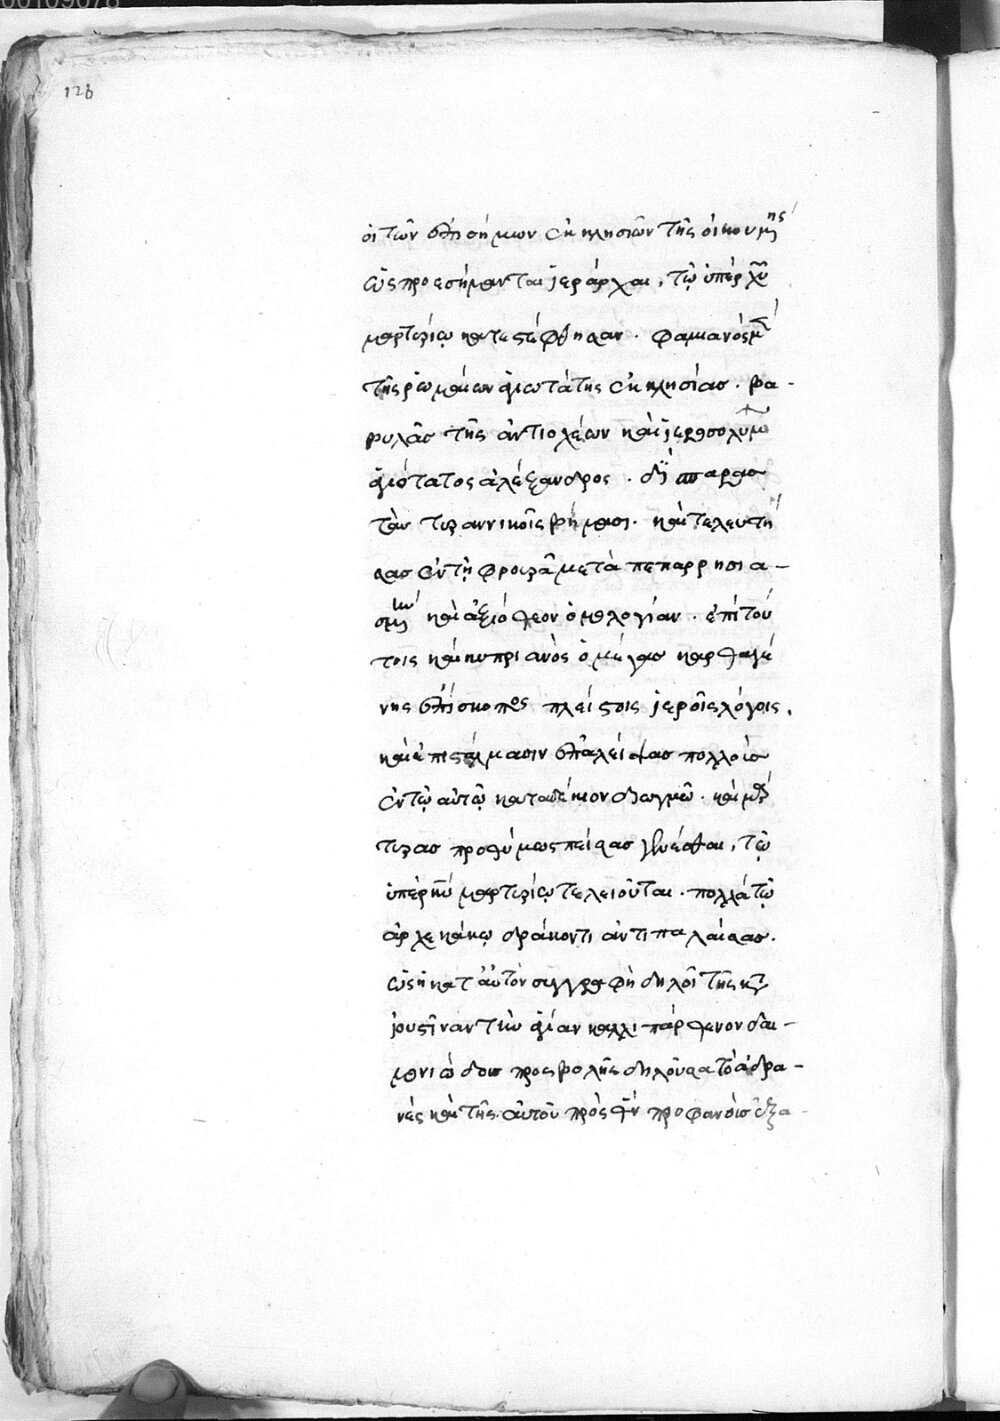 126
οἱ τῶν ἐπισήμων ἐκκλησιῶν τῆς οἰκουμ(έν)ης
ὡς προεσήμαναν ται ἱεράρχαι, τῷ ὑπὲρ χυ
μαρτυρίῳ κατεστέφθησαν. φαμιανὸς μ
τῆς ῥωμαίων ἁγιωτάτης ἐκκλησίας. βα-
βυλᾶς τῆς ἀντιοχέων καὶ ἱεροσολύμω
ἁγιώτατος ἀλέξανδρος.
τὰν τυραννικοῖς βήμασι. καὶ τελευτή
σας ἐν τῇ φρουρᾷ μετὰ πεπαρρησια-
σμ καὶ ἀξιόθεον ὁμολογίαν. ἐπὶ τού
τοις καὶ κυπριανὸς ὁ μέγας καρθαγέ
νης ἐπίσκοπος πλείστοις ἱεροῖς λόγοις,
καὶ ἐπιστέλμασιν ἐπαλείψας πολλοὺς
ἐν τῷ αὐτῷ κατὰ δέκιον διωγμῷ. καὶ μάρ
τυρας προθύμως πείσας γενέσθαι, τῷ
ὑπὲρ κυ μαρτυρίῳ τελειοῦται. πολλὰ τῷ
ἀρχεκάκῳ δράκοντι ἀντιπαλαίσας.
ὡς ἡ κατ' αὐτὸν συγγραφὴ δηλοῖ τῆς κτ
ἰουστῖναν τὴν ἁγίαν καλλιπάρθενον δαι-
μονιώδους προσβολῆς δηλοῦσα τὸ ἀδρα-
νές καὶ τῆς αὐτοῦ πρὸς θν προφανοῦς ἐξα-